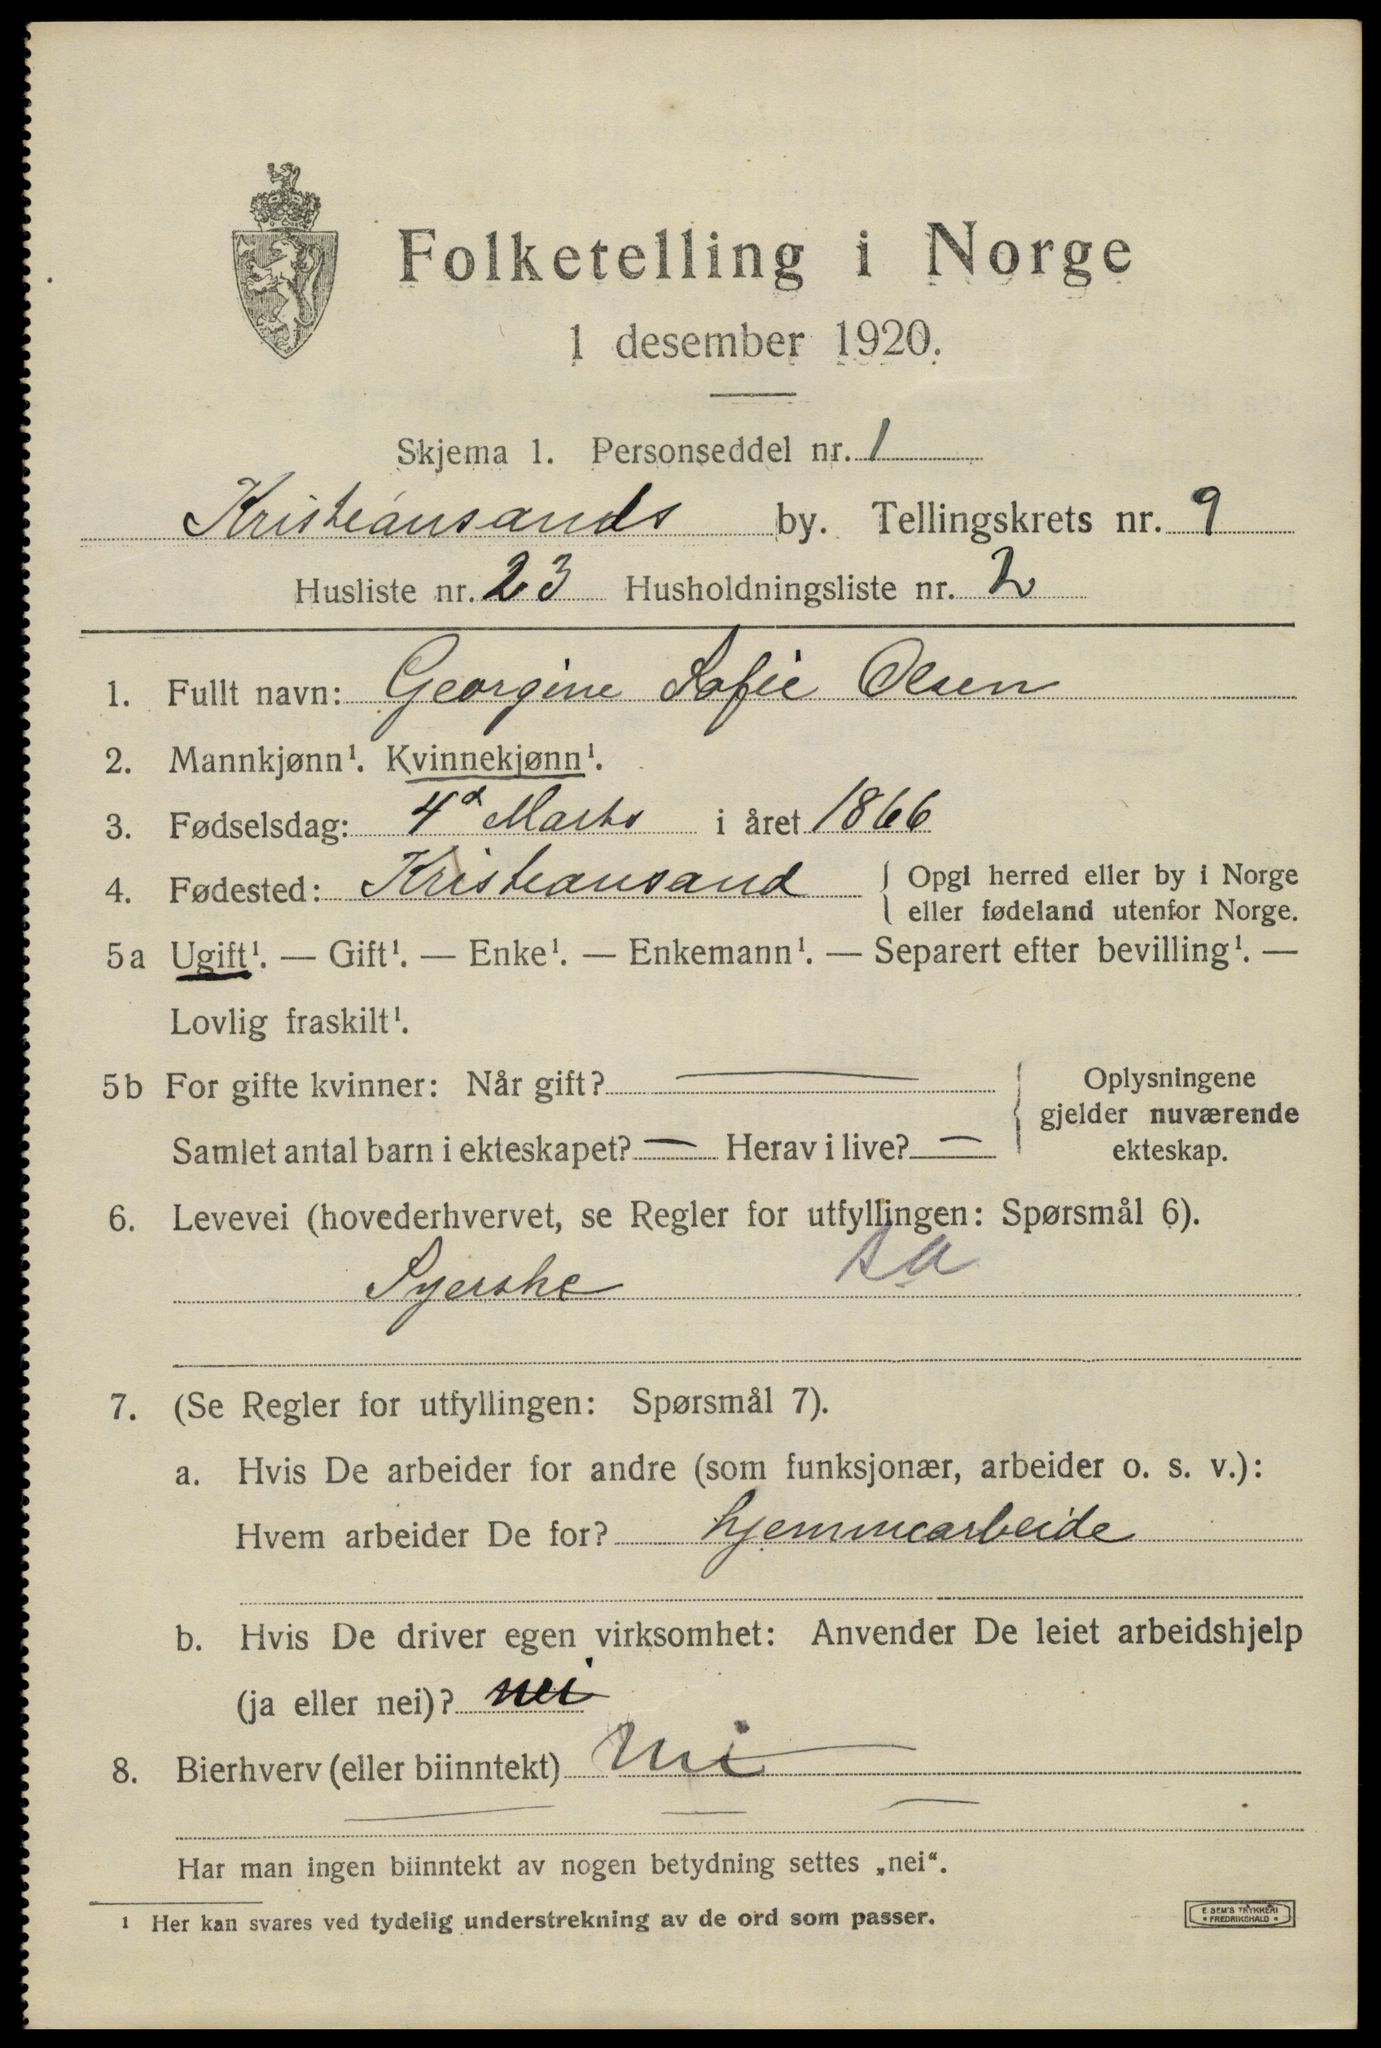 Folketelling i Norge
1 desember 1920.
Skjema 1. Personseddel nr. 1
Kristiansands by. Tellingskrets nr. 9
Husliste nr. 23 Husholdningsliste nr. 2
1. Fullt navn: Georgine Sofie Olsen
2. Mannkjønn¹. Kvinnekjønn¹.
3. Fødselsdag: 4d Marts i året 1866
4. Fødested: Kristiansand { Opgi herred eller by i Norge
eller fødeland utenfor Norge.
5a Ugift¹. — Gift¹. — Enke¹. — Enkemann¹. — Separert efter bevilling¹. —
Lovlig fraskilt¹.
5b For gifte kvinner: Når gift? —
Samlet antal barn i ekteskapet? — Herav i live? —
{ Oplysningene
gjelder nuværende
ekteskap.
6. Levevei (hovederhvervet, se Regler for utfyllingen: Spørsmål 6).
Syerske
7. (Se Regler for utfyllingen: Spørsmål 7).
a. Hvis De arbeider for andre (som funksjonær, arbeider o. s. v.):
Hvem arbeider De for? hjemmearbeide
b. Hvis De driver egen virksomhet: Anvender De leiet arbeidshjelp
(ja eller nei)? nei
8. Bierhverv (eller biinntekt) Nei
Har man ingen biinntekt av nogen betydning settes „nei“.
¹ Her kan svares ved tydelig understrekning av de ord som passer.
E SEM'S TRYKKERI
• FREDRIKSHALD •